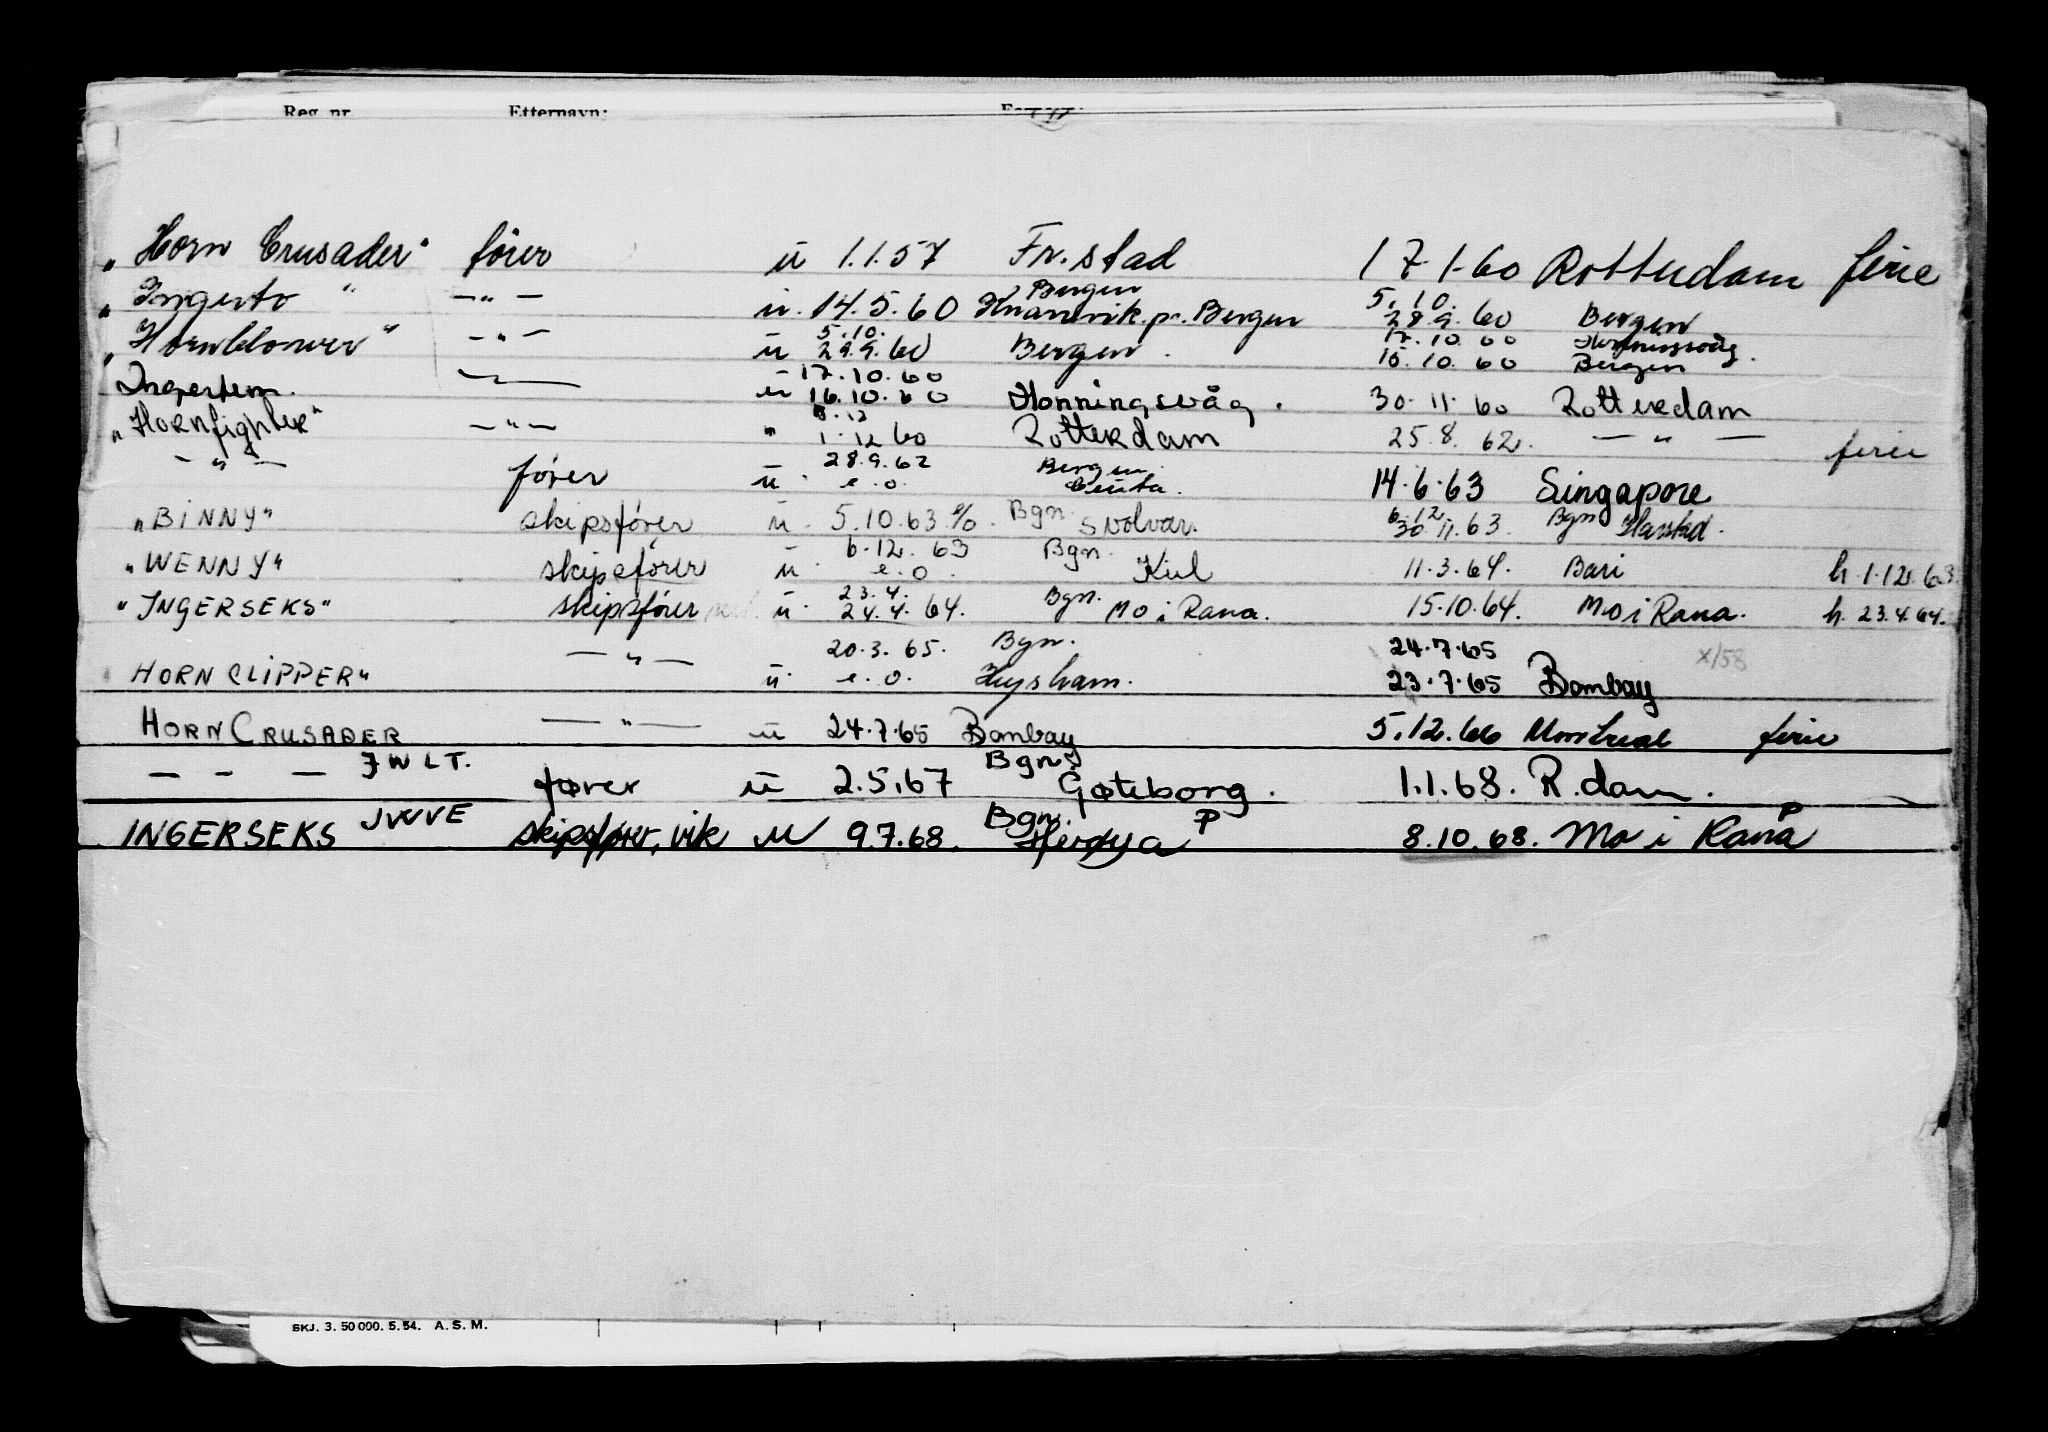 Reg. nr. Etternavn:
"Horn Crusader" fører u 1.1.57 Fr.stad 17-1-60 Rotterdam ferie
Bergen 5.10.
"Ingerto" — " — u. 14.5.60 Knarrvik pr. Bergen 28.9.60 Bergen
5.10. 17.10.60 Honningsvåg.
"Hornblower" — " — u 29.9.60 Bergen. 15.10.60 Bergen
17.10.60
Ingertem. — " — u 16.10.60 Honningsvåg. 30.11.60 Rotterdam
"Hornfighter" — " — " 1.12.60 Rotterdam 25.8.62. — " — ferie
28.9.62 Bergen
— " — fører u. e.o. Ceuta. 14.6.63 Singapore
6.12
"BINNY" skipsfører u. 5.10.63 Bgn. Svolvær. 30.11.63. Bgn Harstad.
6.12.63 Bgn.
"WENNY" skipsfører u. e.o. Kiel 11.3.64. Bari h.1.12.63.
23.4. Bgn.
"INGERSEKS" skipsfører u. 24.4.64. Mo i Rana. 15.10.64. Mo i Rana. h. 23.4.64.
20.3.65. Bgn. 24.7.65 x/58
HORN CLIPPER" — " — u. e.o. Heysham. 23.7.65 Bombay
HORN CRUSADER — " — u 24.7.65 Bombay 5.12.66 Montreal ferie
JWLT. Bgn
— - — fører u 2.5.67 Gøteborg. 1.1.68. R.dam.
JVVE Bgn. P P
INGERSEKS skipsfører, vik u 9.7.68. Herøya 8.10.68. Mo i Rana
SKJ. 3. 50 000. 5.54. A. S. M.